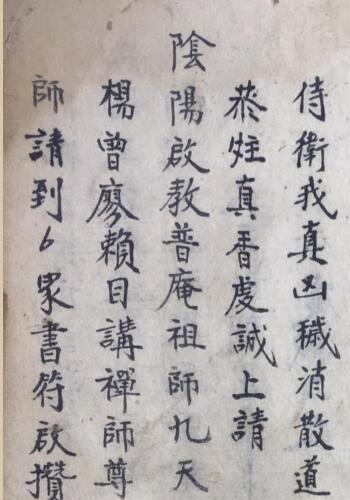 侍衛我真凶穢消散道
炷真香虔誠上請
陰陽啟教普庵祖師九天
楊曾廖賴目講禪師尊
師請到6眾書符啟攢